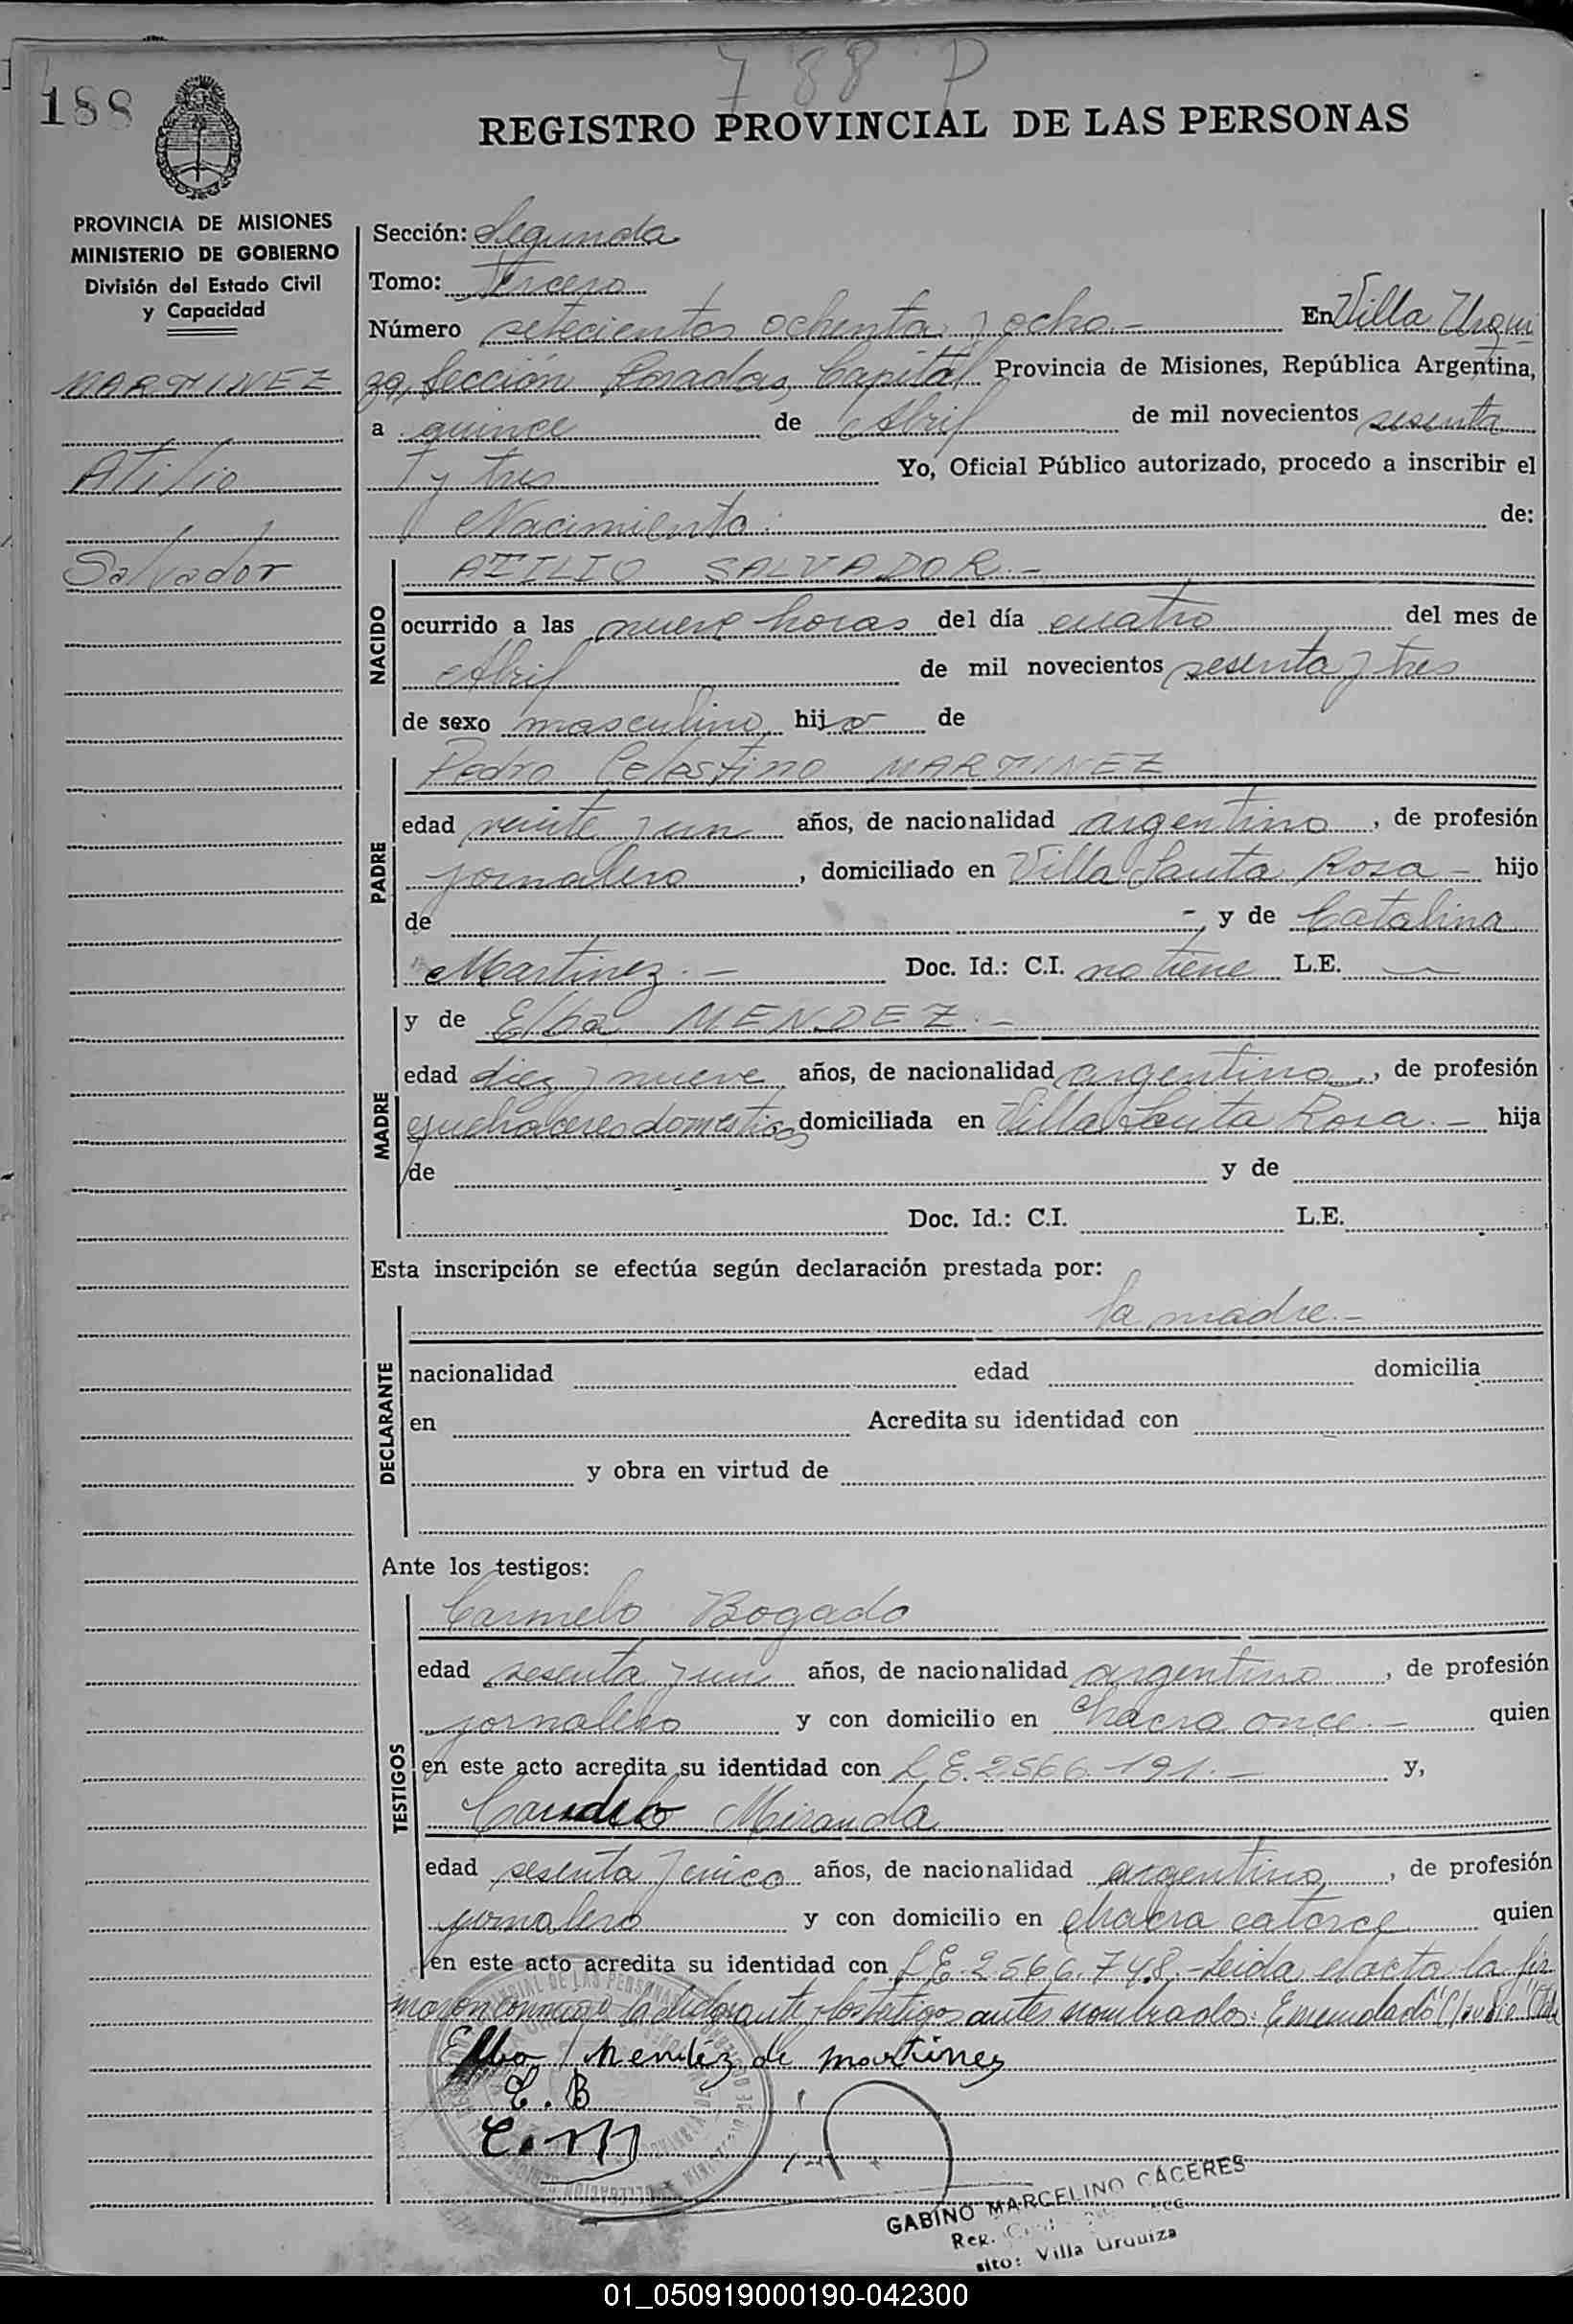 788 P
188
REGISTRO PROVINCIAL DE LAS PERSONAS
PROVINCIA DE MISIONES
MINISTERIO DE GOBIERNO
División del Estado Civil
y Capacidad
MARTINEZ
Atilio
Salvador
Sección: Segunda
Tomo: Tercero
Número setecientos ochenta y ocho.- En Villa Urqui
za, Sección Posadas, Capital Provincia de Misiones, República Argentina,
a quince de Abril de mil novecientos sesenta
y tres Yo, Oficial Público autorizado, procedo a inscribir el
Nacimiento de:
NACIDO
ATILIO SALVADOR.-
ocurrido a las nueve horas del día cuatro del mes de
Abril de mil novecientos sesenta y tres
de sexo masculino, hijo de
PADRE
Pedro Celestino MARTINEZ
edad veinte y un años, de nacionalidad argentino, de profesión
jornalero, domiciliado en Villa Santa Rosa - hijo
de - y de Catalina
Martinez.- Doc. Id.: C.I. no tiene L.E. —
MADRE
y de Elba MENDEZ.-
edad diez y nueve años, de nacionalidad argentina, de profesión
quehaceres domesticos domiciliada en Villa Santa Rosa.- hija
de y de
Doc. Id.: C.I. L.E.
Esta inscripción se efectúa según declaración prestada por:
DECLARANTE
la madre.-
nacionalidad edad domicilia
en Acredita su identidad con
y obra en virtud de
Ante los testigos:
TESTIGOS
Carmelo Bogado
edad sesenta y un años, de nacionalidad argentino, de profesión
jornalero y con domicilio en Chacra once.- quien
en este acto acredita su identidad con L.E. 2.566.191.- y,
Claudio Miranda
edad sesenta y cinco años, de nacionalidad argentino, de profesión
jornalero y con domicilio en chacra catorce quien
en este acto acredita su identidad con L.E. 2.566.748.- Leida el acta la fir
maron conmigo la declarante y los testigos antes nombrados: Enmendado "Claudio" Vale
Elba Mendéz de martinez
C. B
C. M
GABINO MARCELINO CACERES
Reg.
sito: Villa Urquiza
01_050919000190-042300